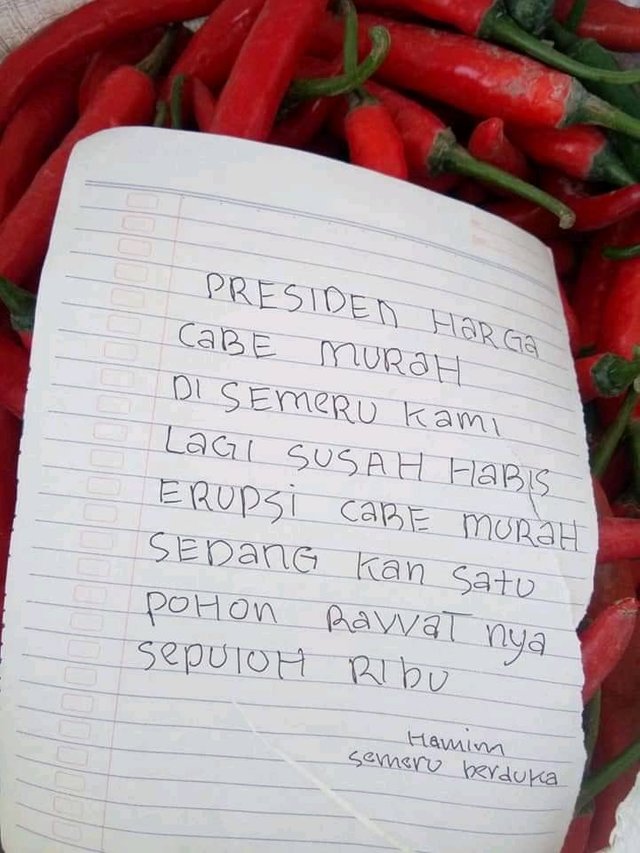 PRESIDEN HARGA
CABE MURAH
DI SEMERU KAMI
LAGI SUSAH HABIS
ERUPSI CABE MURAH
SEDANG KAN SATU
POHON RAWAT nya
SEPULUH RIBU
Hamim
semeru berduka